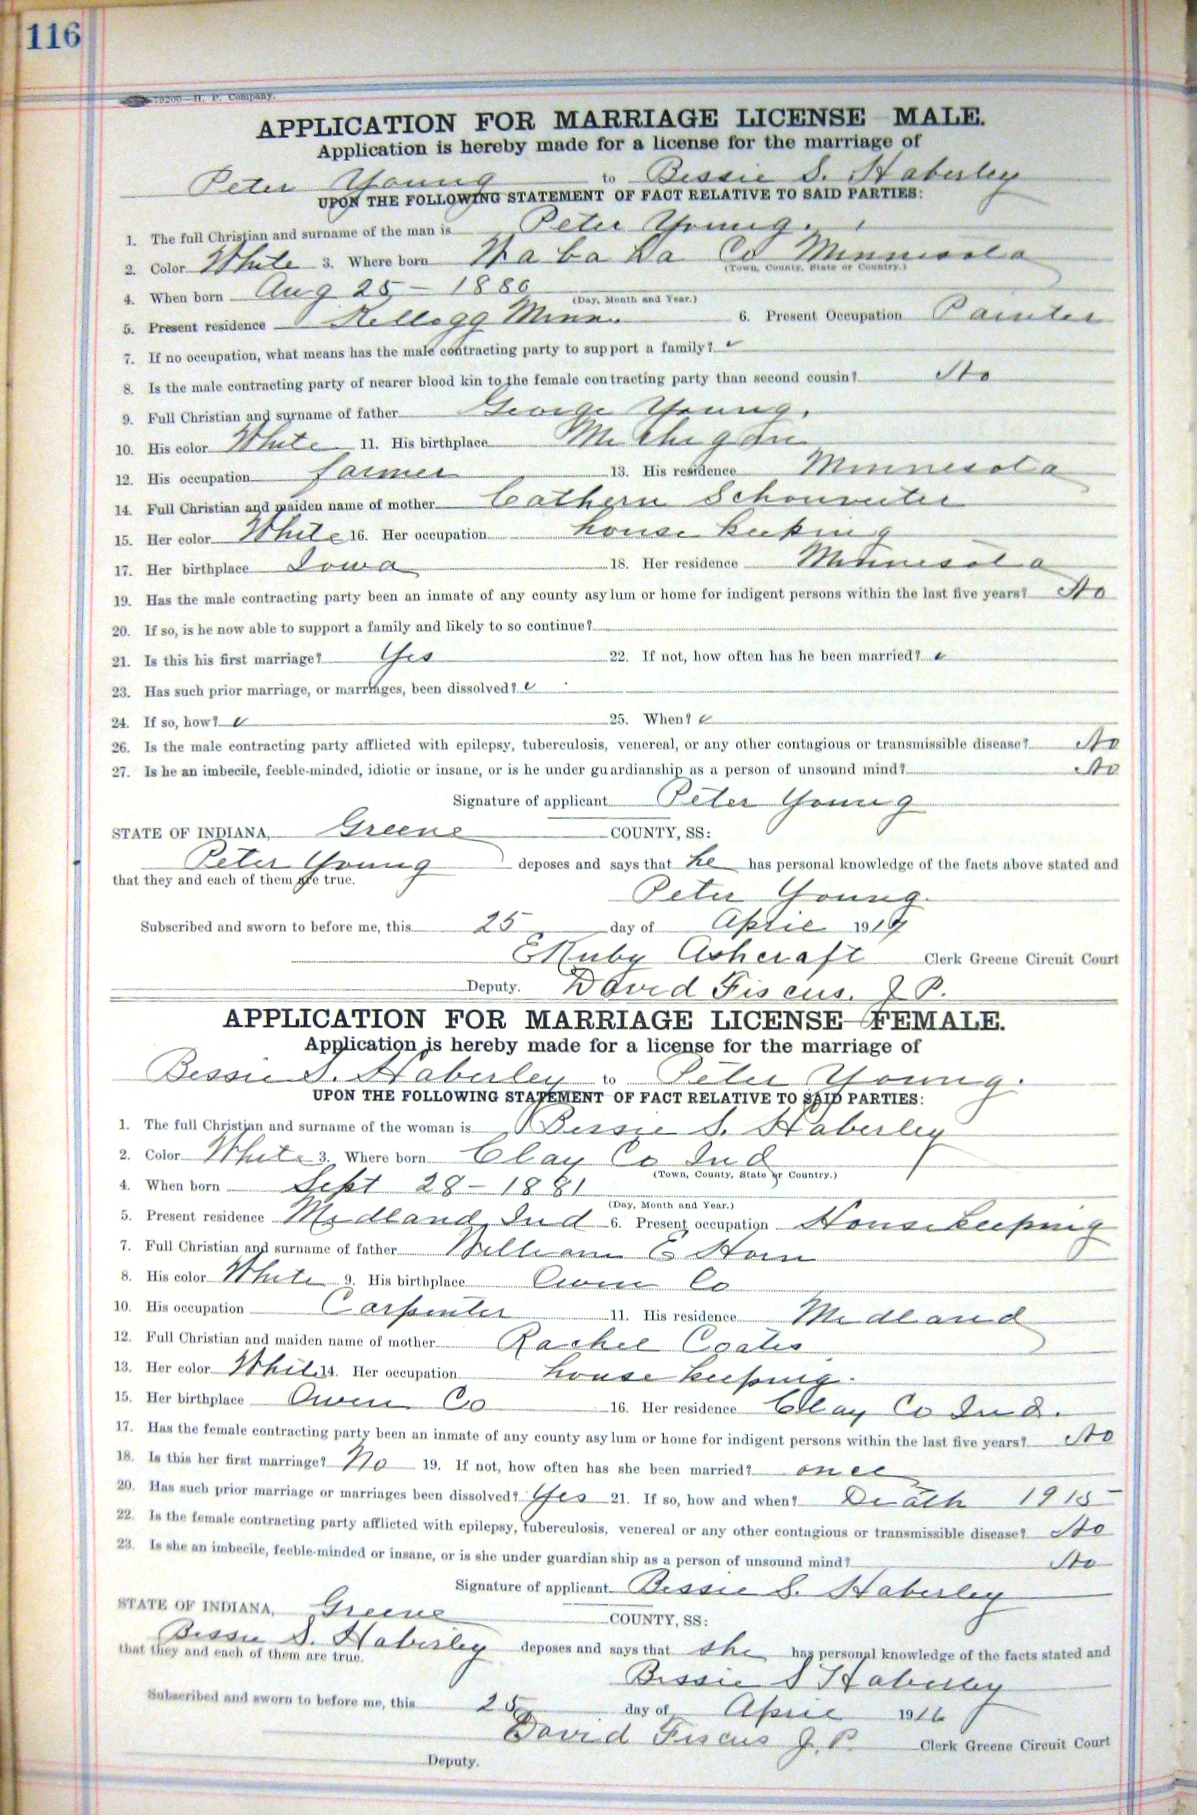 116
79200—H. P. Company.
APPLICATION FOR MARRIAGE LICENSE—MALE.
Application is hereby made for a license for the marriage of
Peter Young to Bessie S. Haberley
UPON THE FOLLOWING STATEMENT OF FACT RELATIVE TO SAID PARTIES:
1. The full Christian and surname of the man is Peter Young.
2. Color White 3. Where born Wa ba Da Co Minnesota
(Town, County, State or Country.)
4. When born Aug 25 – 1880
(Day, Month and Year.)
5. Present residence Kellogg Minn. 6. Present Occupation Painter
7. If no occupation, what means has the male contracting party to support a family? ✓
8. Is the male contracting party of nearer blood kin to the female contracting party than second cousin? No
9. Full Christian and surname of father George Young.
10. His color White 11. His birthplace Michigan
12. His occupation farmer 13. His residence Minnesota
14. Full Christian and maiden name of mother Cathern
15. Her color White 16. Her occupation house keeping
17. Her birthplace Iowa 18. Her residence Minnesota
19. Has the male contracting party been an inmate of any county asylum or home for indigent persons within the last five years? No
20. If so, is he now able to support a family and likely to so continue?
21. Is this his first marriage? Yes 22. If not, how often has he been married? ✓
23. Has such prior marriage, or marriages, been dissolved? ✓
24. If so, how? ✓ 25. When? ✓
26. Is the male contracting party afflicted with epilepsy, tuberculosis, venereal, or any other contagious or transmissible disease? No
27. Is he an imbecile, feeble-minded, idiotic or insane, or is he under guardianship as a person of unsound mind? No
Signature of applicant Peter Young
STATE OF INDIANA, Greene COUNTY, SS:
Peter Young deposes and says that he has personal knowledge of the facts above stated and
that they and each of them are true.
Peter Young.
Subscribed and sworn to before me, this 25 day of April 191
E Ruby Ashcraft Clerk Greene Circuit Court
Deputy. David Fiscus. J P.
APPLICATION FOR MARRIAGE LICENSE—FEMALE.
Application is hereby made for a license for the marriage of
Bessie S. Haberley to Peter Young.
UPON THE FOLLOWING STATEMENT OF FACT RELATIVE TO SAID PARTIES:
1. The full Christian and surname of the woman is Bessie S. Haberley
2. Color White 3. Where born Clay Co Ind
(Town, County, State or Country.)
4. When born Sept 28 – 1881
(Day, Month and Year.)
5. Present residence Midland, Ind 6. Present occupation Housekeeping
7. Full Christian and surname of father William E Horn
8. His color White 9. His birthplace Owen Co
10. His occupation Carpenter 11. His residence Midland
12. Full Christian and maiden name of mother Rachel Coates
13. Her color White 14. Her occupation house keeping.
15. Her birthplace Owen Co 16. Her residence Clay Co Ind.
17. Has the female contracting party been an inmate of any county asylum or home for indigent persons within the last five years? No
18. Is this her first marriage? No 19. If not, how often has she been married? once
20. Has such prior marriage or marriages been dissolved? Yes 21. If so, how and when? Death 1915
22. Is the female contracting party afflicted with epilepsy, tuberculosis, venereal or any other contagious or transmissible disease? No
23. Is she an imbecile, feeble-minded or insane, or is she under guardianship as a person of unsound mind? No
Signature of applicant Bessie S. Haberley
STATE OF INDIANA, Greene COUNTY, SS:
Bessie S. Haberley deposes and says that she has personal knowledge of the facts stated and
that they and each of them are true.
Bessie S Haberley
Subscribed and sworn to before me, this 25 day of April 1916
David Fiscus J. P. Clerk Greene Circuit Court
Deputy.